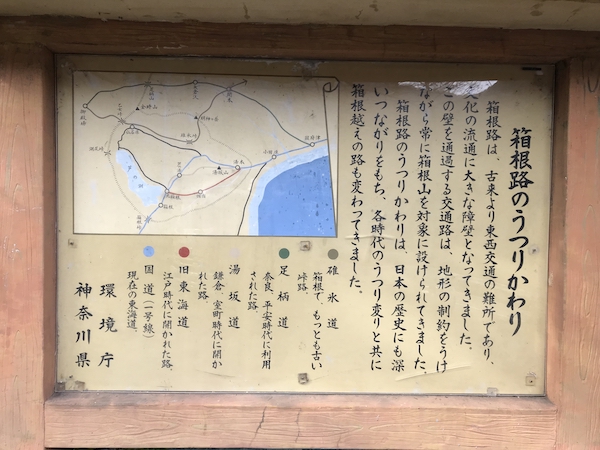 箱根路のうつりかわり
箱根路は、古来より東西交通の難所であり、
化の流通に大きな障壁となってきました。
の壁を通過する交通路は、地形の制約をうけ
ながら常に箱根山を対象に設けられてきました。
箱根路のうつりかわりは、日本の歴史にも深
いつながりをもち、各時代のうつり変りと共に
箱根越えの路も変わってきました。
碓氷道
箱根で、もっとも古い
峠路。
足柄道
奈良、平安時代に利用
された路。
湯坂道
鎌倉、室町時代に開か
れた路。
旧東海道
江戸時代に開かれた路。
国道（一号線）
現在の東海道。
環境庁
神奈川県
芦の湖
小田原
国府津
湯本
湯坂山
元箱根
箱根
畑宿
箱根峠
御殿場
乙女峠
金時山
仙石原
明神ヶ岳
碓氷峠
湖尻峠